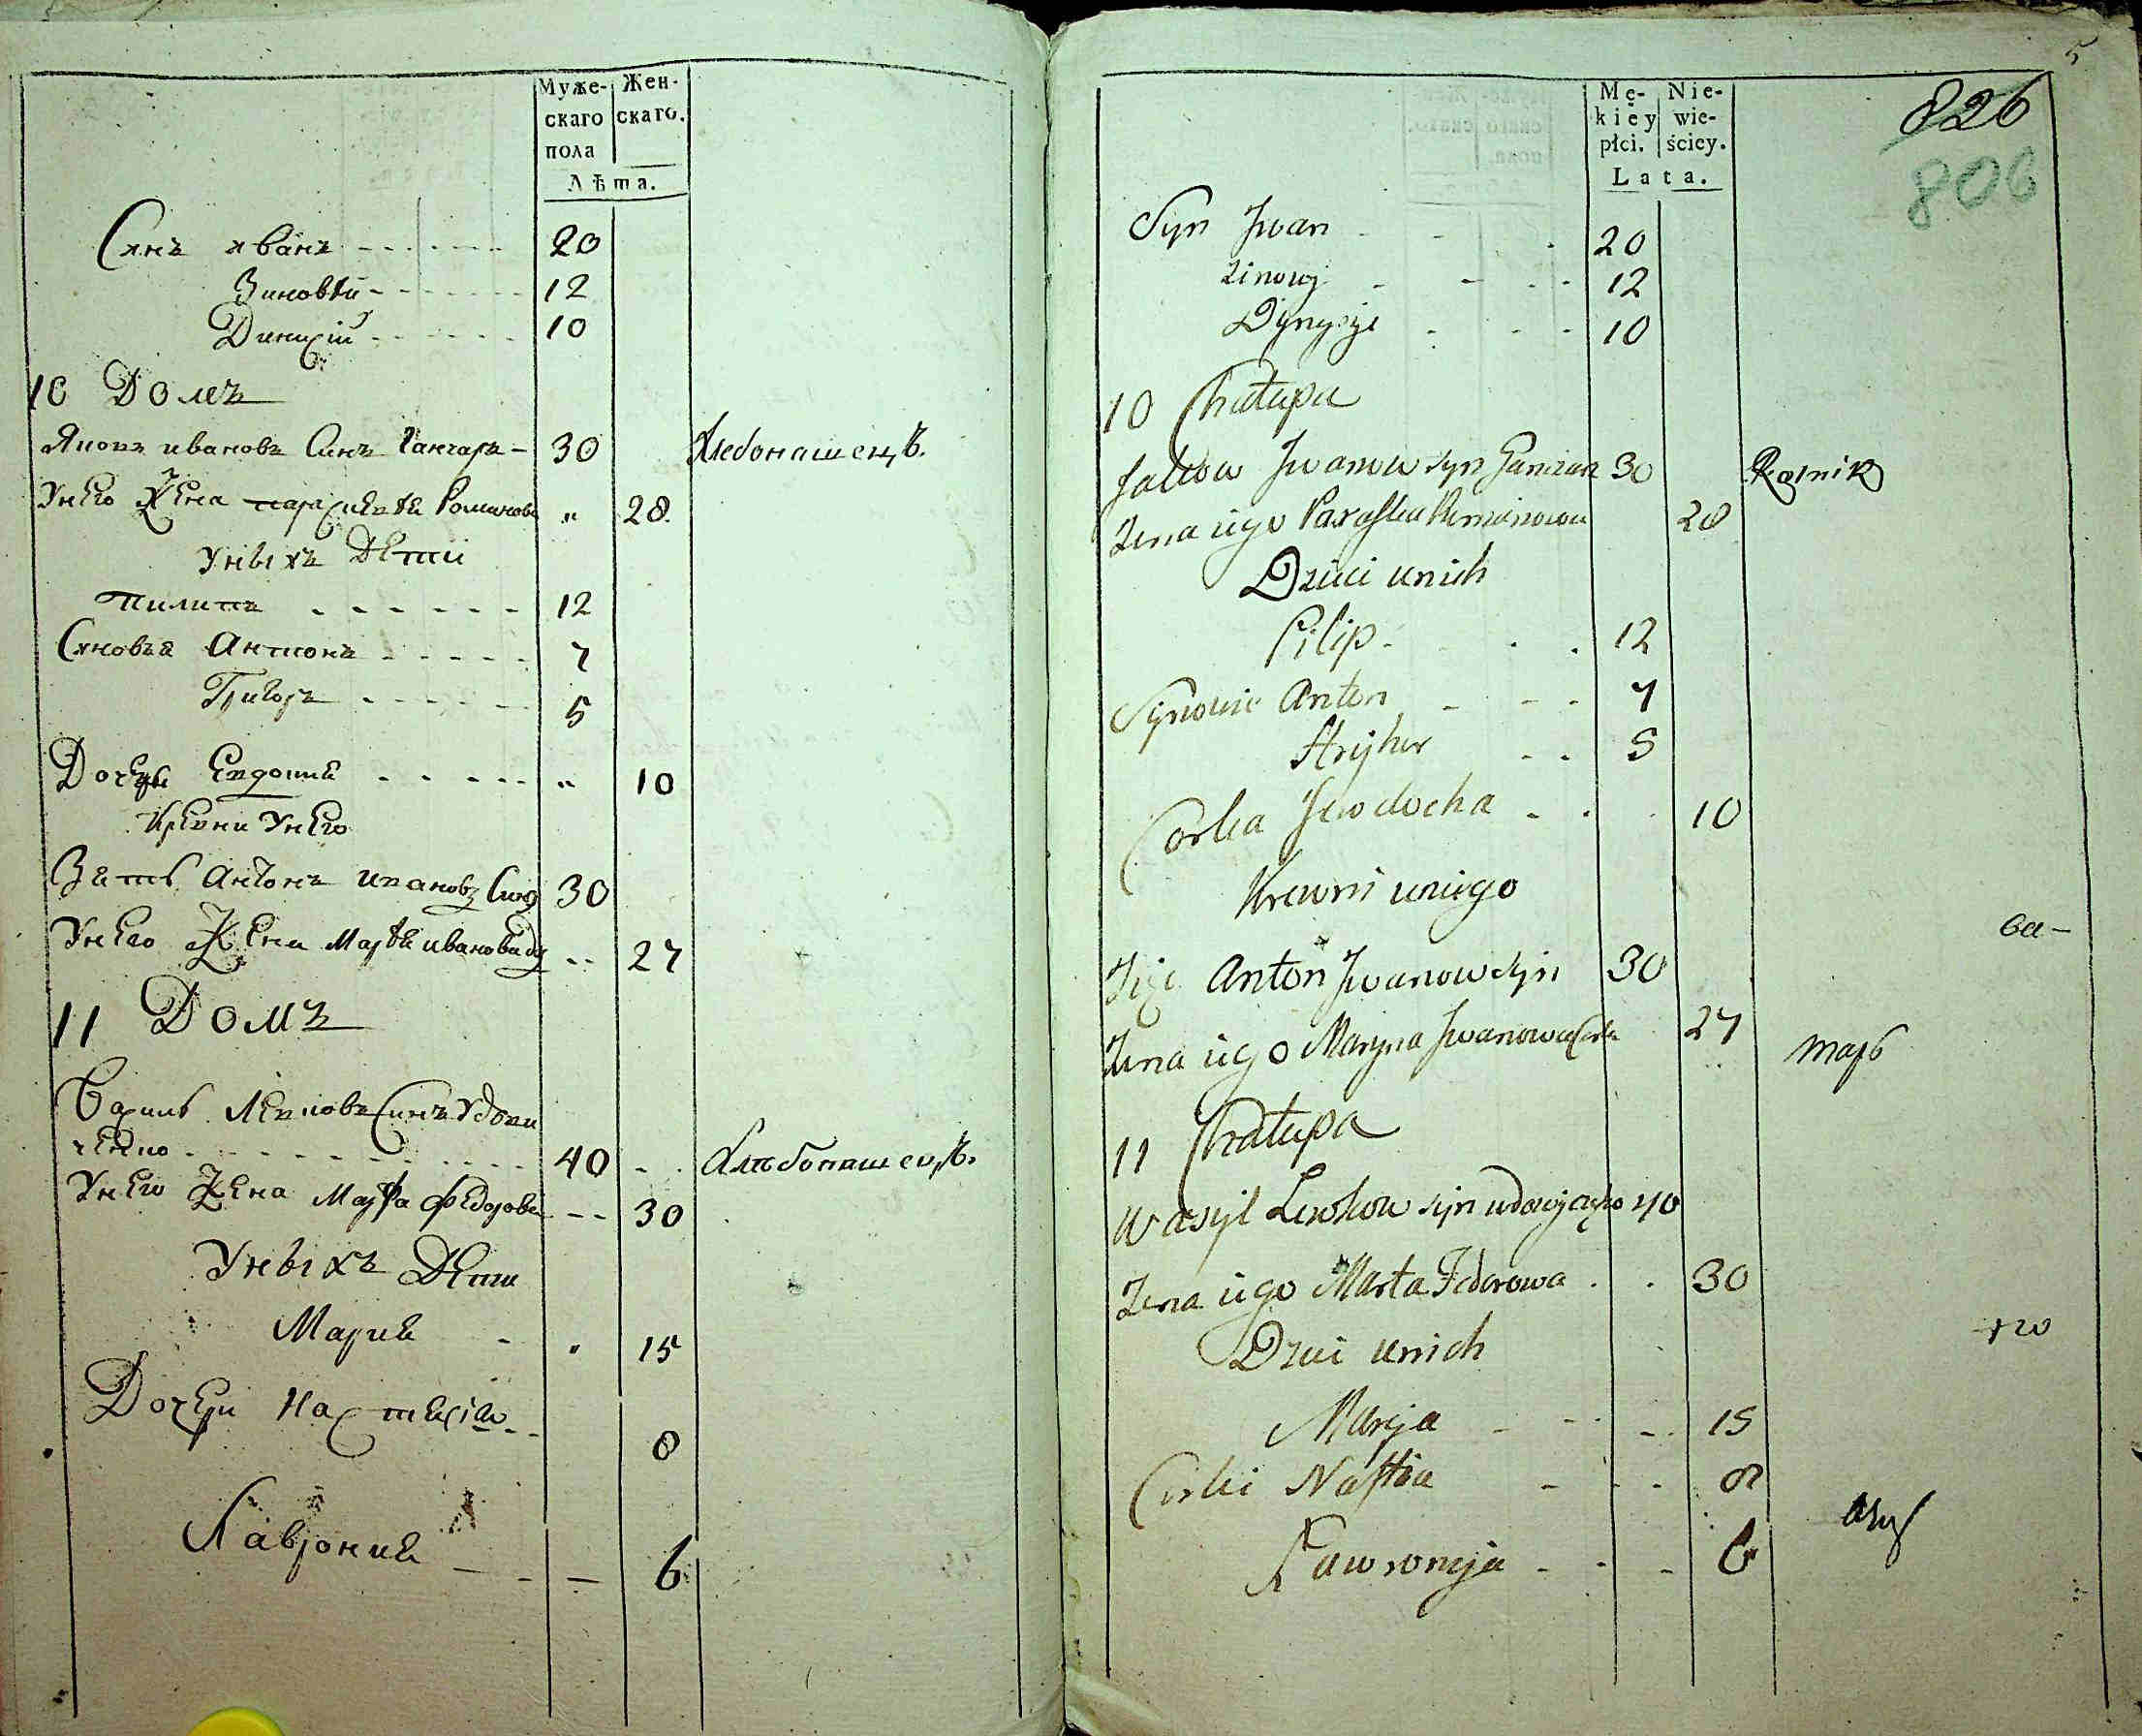 Муже-
скаго
пола
Жен-
скаго.
Лѣта.
Синъ иванъ 20
Зиновѣй 12
Динисій 10
10 Домъ
Яковъ ивановъ Синъ Ганчаръ 30 Хлебопашецъ.
Унего Жена параскевѣя Романова " 28
Унихъ Дети
пилипъ 12
Синовья Антонъ 7
Григоръ 5
Дочерь Евдокия " 10
Кревни Унего
Зять Антонъ ивановъ Синъ 30
Унего Жена ивановa 27
11 Домъ
Василь Левковъ Синъ Удови
ченко 40 Хлѣбопашецъ.
Унего Жена Марфа Федорова 30
Унихъ Дети
Мария 15
Дочери Настасия 8
Лаврония 6
5
826
806
Mę-
kiey
płci.
Nie-
wie-
ściey.
Lata.
Syn Jwan 20
Zinowj 12
Dynysji 10
10 Chałupa
Jakow Jwanow syn Ganczar 30 Rolnik
Żena iego Paraska Romanowa 28
Dzieci unich
Pilip 12
Synowie Anton 7
Hryhor 5
Corka Jewdocha 10
Krewni uniego
Anton Jwanow syn 30
ва-
Żena iego Maryna Jwanowa Corka 27
тарь
11 Chałupa
Wasyl Lewkow syn udowiczenko 40
Żena iego Marta Fedorowa 30
Dzieci unich
го
Marja 15
Corki Nastia 8
Ławronija 6